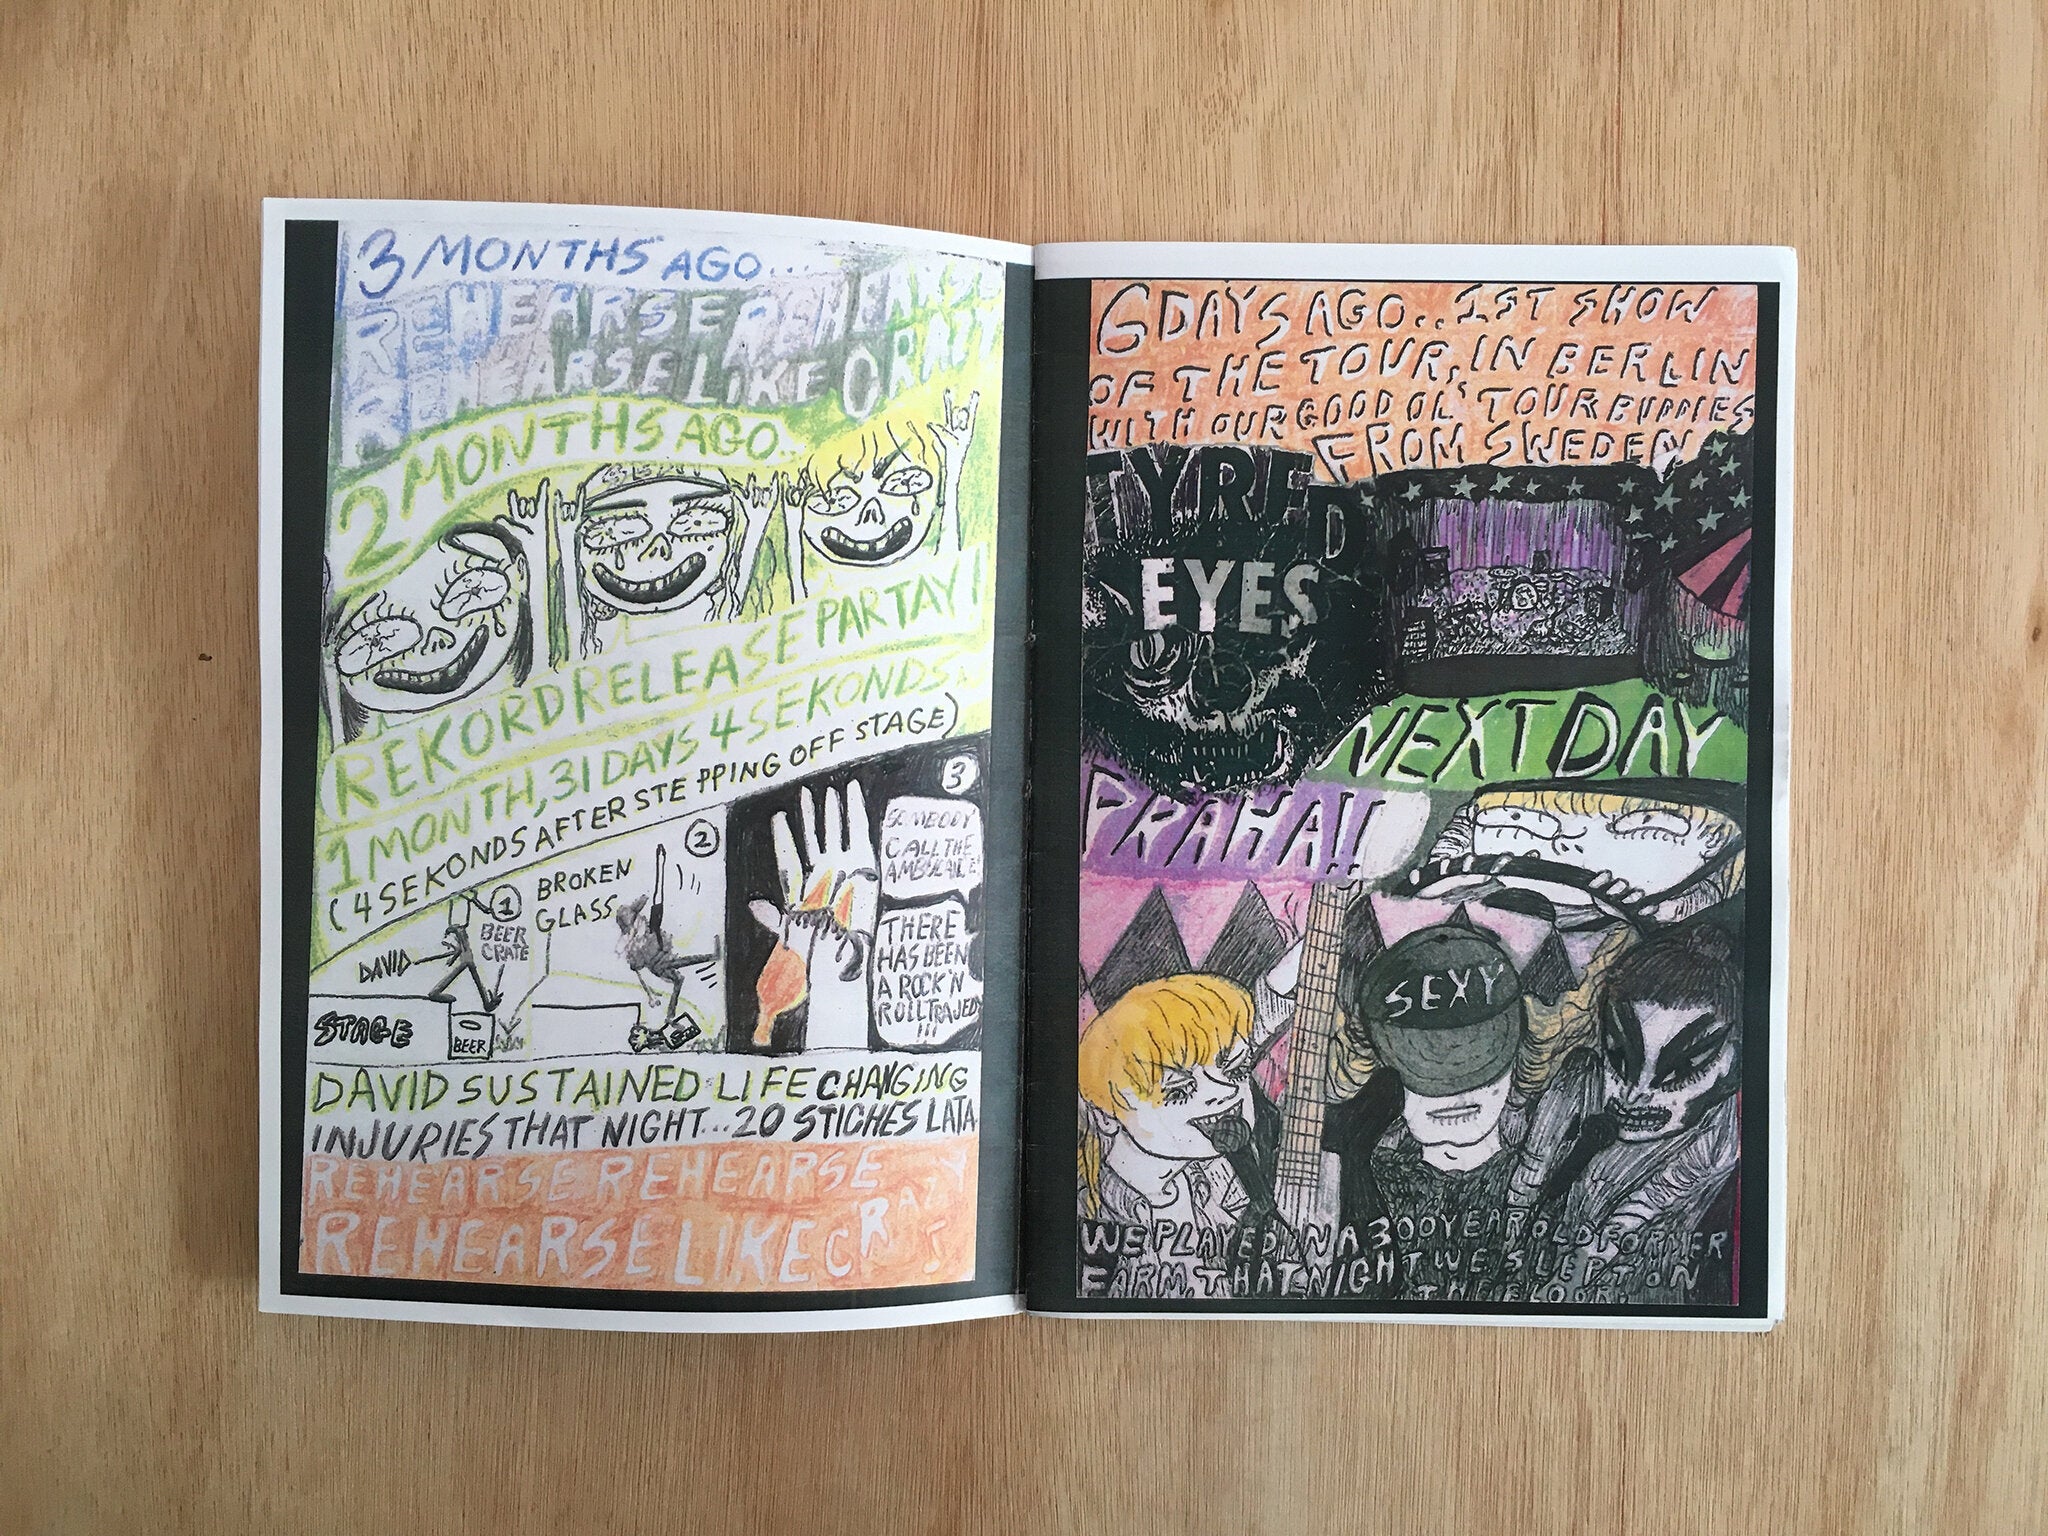 3 MONTHS AGO...
REHEARSE REHEARSE
REHEARSE LIKE CRAZY
2 MONTHS AGO..
REKORDRELEASE PARTAY!
1 MONTH, 31 DAYS 4 SEKONDS.
(4 SEKONDS AFTER STEPPING OFF STAGE)
1
DAVID
BEER
CRATE
STAGE
BEER
BROKEN
GLASS
2
3
SOMEBODY
CALL THE
THERE
HAS BEEN
A ROCK'N
ROLL TRAJEDY
!!!
DAVID SUSTAINED LIFE CHANGING
INJURIES THAT NIGHT... 20 STICHES LATA
REHEARSE REHEARSE
REHEARSE LIKE CRAZY
6 DAYS AGO.. 1ST SHOW
OF THE TOUR, IN BERLIN
WITH OUR GOOD OL' TOUR BUDDIES
FROM SWEDEN
TYRED
EYES
NEXT DAY
PRAHA!!
SEXY
WE PLAYED IN A 300 YEAR OLD FORMER
FARM. THAT NIGHT WE SLEPT ON
THE FLOOR.